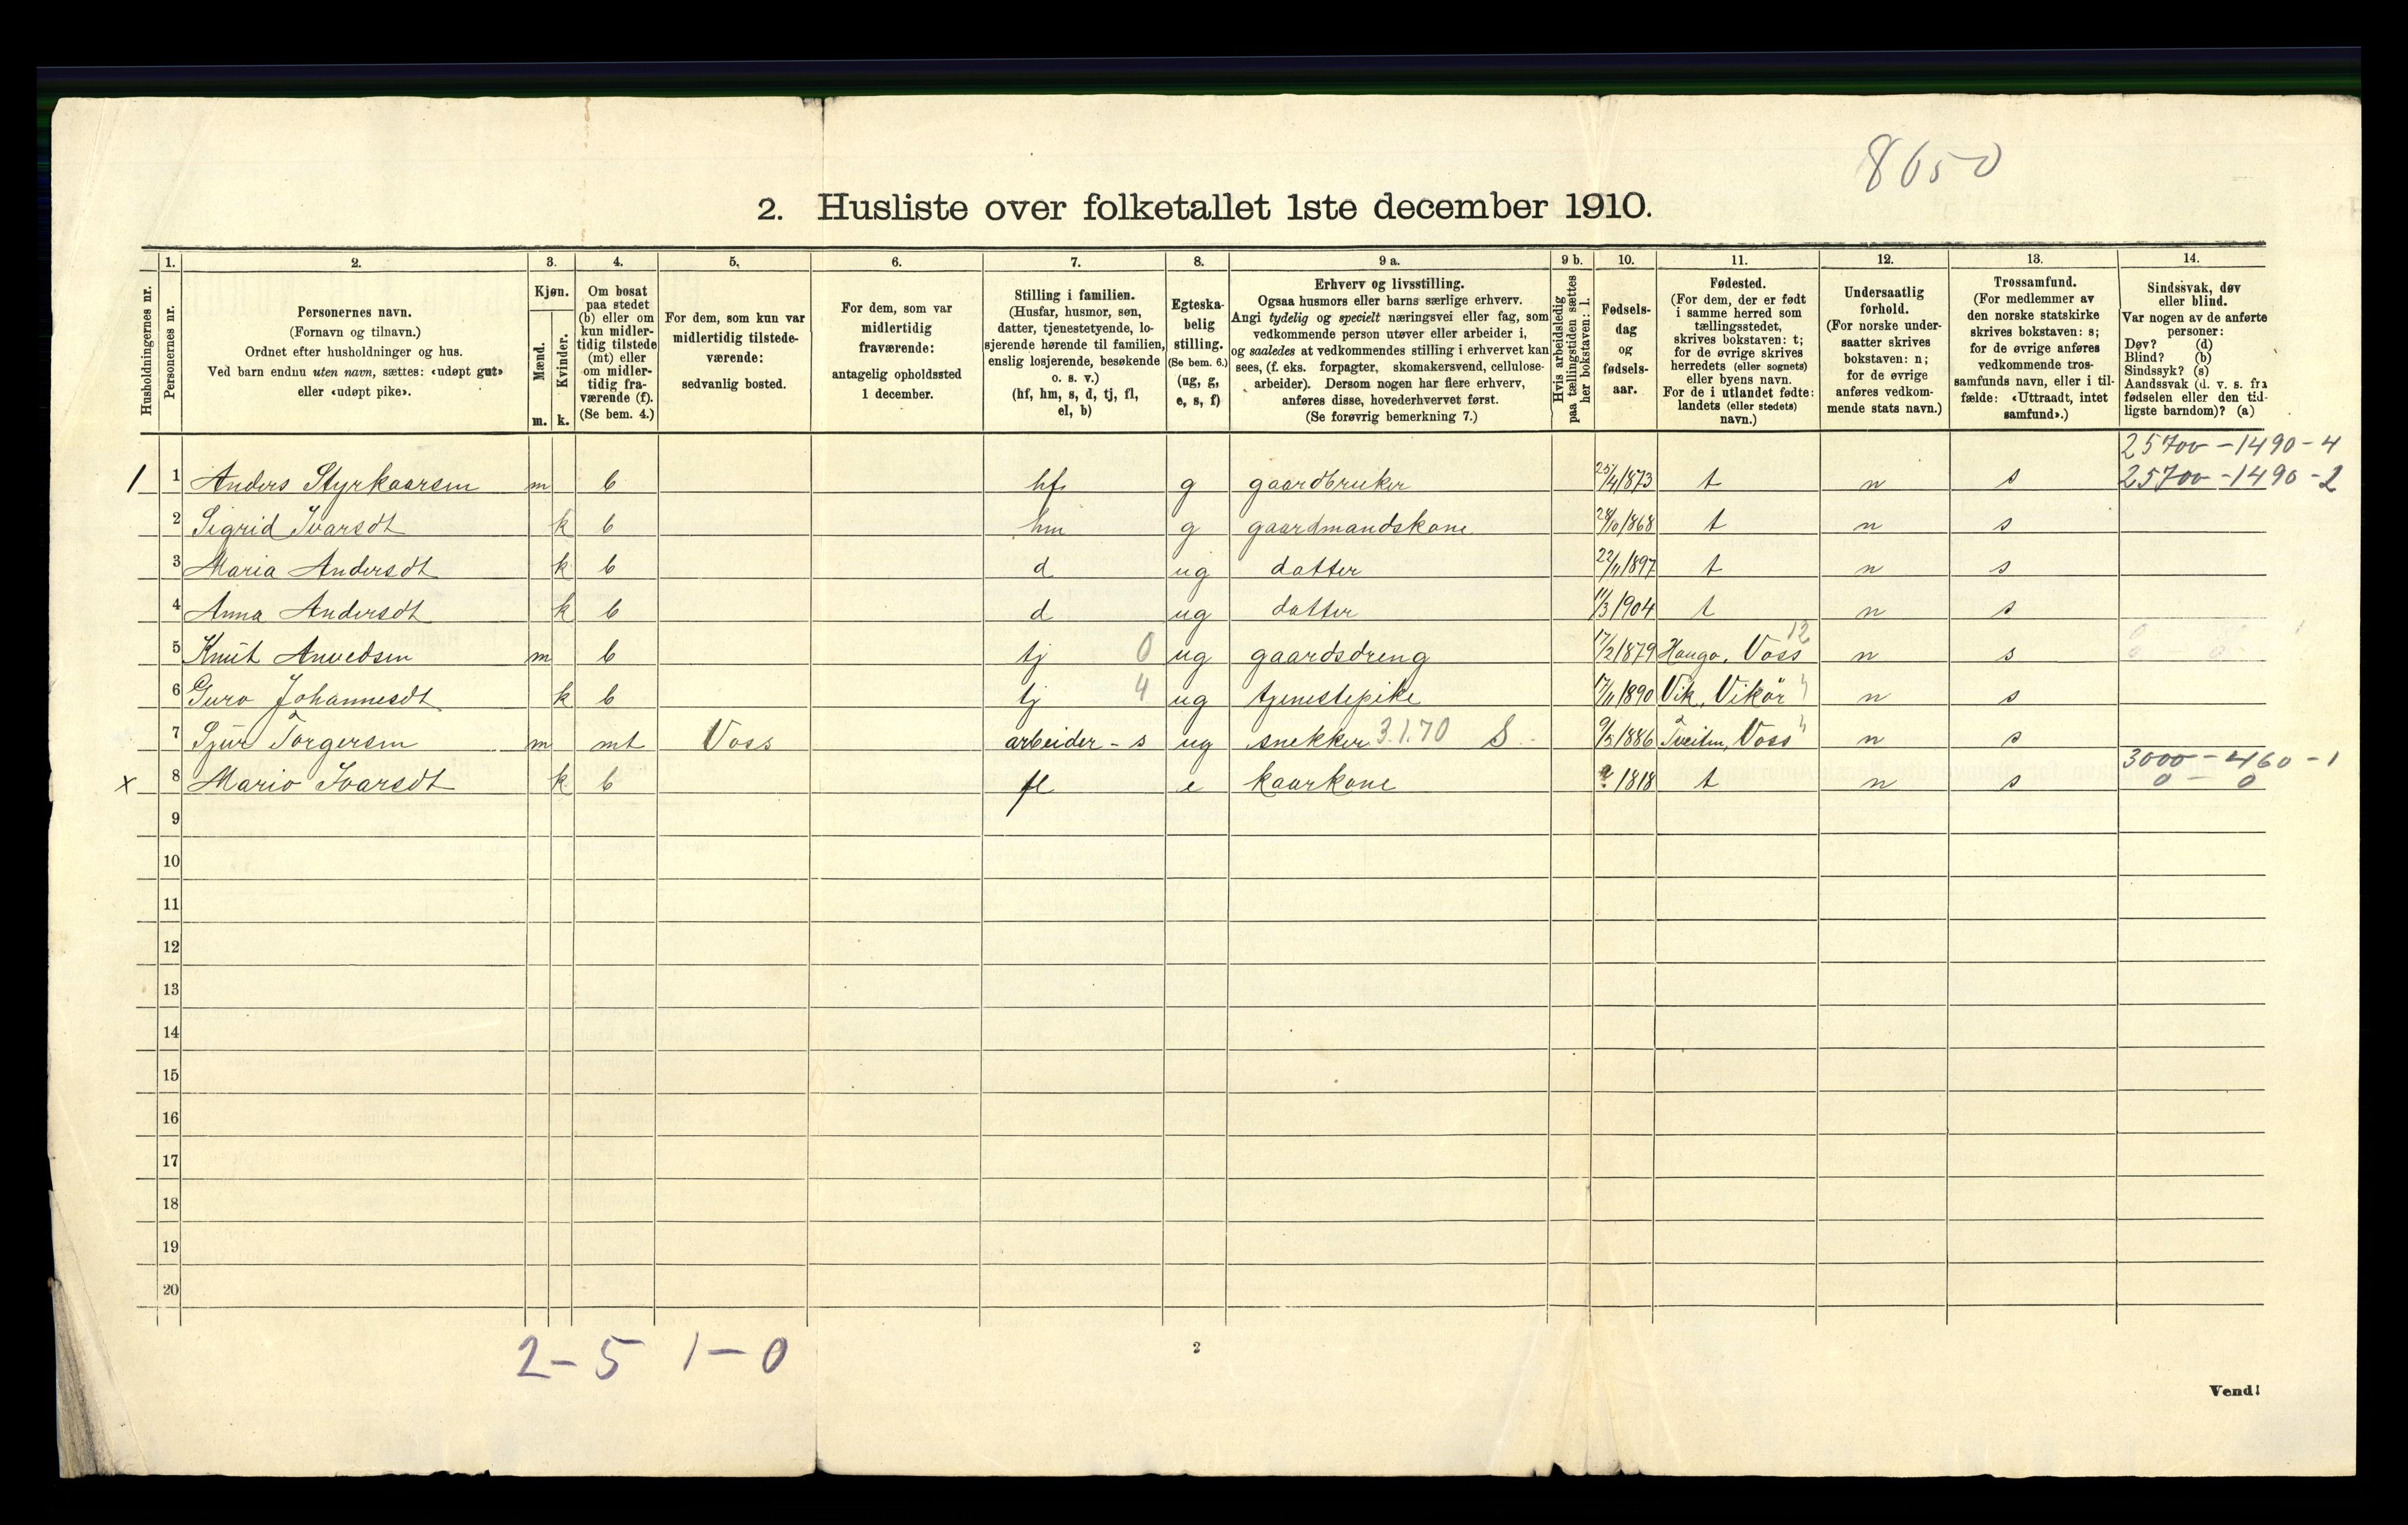 8650
2. Husliste over folketallet 1ste december 1910.
Husholdningernes nr.
1.
Personernes nr.
2.
Personernes navn.
(Fornavn og tilnavn.)
Ordnet efter husholdninger og hus.
Ved barn endnu uten navn, sættes: «udøpt gut»
eller «udøpt pike».
3.
Kjøn.
Mænd.
Kvinder.
m. k.
4.
Om bosat
paa stedet
(b) eller om
kun midler-
tidig tilstede
(mt) eller
om midler-
tidig fra-
værende (f).
(Se bem. 4.)
5.
For dem, som kun var
midlertidig tilstede-
værende:
sedvanlig bosted.
6.
For dem, som var
midlertidig
fraværende:
antagelig opholdssted
1 december.
7.
Stilling i familien.
(Husfar, husmor, søn,
datter, tjenestetyende, lo-
sjerende hørende til familien,
enslig losjerende, besøkende
o. s. v.)
(hf, hm, s, d, tj, fl,
el, b)
8.
Egteska-
belig
stilling.
(Se bem. 6.)
(ug, g,
e, s, f)
9 a.
Erhverv og livsstilling.
Ogsaa husmors eller barns særlige erhverv.
Angi tydelig og specielt næringsvei eller fag, som
vedkommende person utøver eller arbeider i,
og saaledes at vedkommendes stilling i erhvervet kan
sees, (f. eks. forpagter, skomakersvend, cellulose-
arbeider). Dersom nogen har flere erhverv,
anføres disse, hovederhvervet først.
(Se forøvrig bemerkning 7.)
9 b.
Hvis arbeidsledig
paa tællingstiden sættes
her bokstaven: l.
10.
Fødsels-
dag
og
fødsels-
aar.
11.
Fødested.
(For dem, der er født
i samme herred som
tællingsstedet,
skrives bokstaven: t;
for de øvrige skrives
herredets (eller sognets)
eller byens navn.
For de i utlandet fødte:
landets (eller stedets)
navn.)
12.
Undersaatlig
forhold.
(For norske under-
saatter skrives
bokstaven: n;
for de øvrige
anføres vedkom-
mende stats navn.)
13.
Trossamfund.
(For medlemmer av
den norske statskirke
skrives bokstaven: s;
for de øvrige anføres
vedkommende tros-
samfunds navn, eller i til-
fælde: «Uttraadt, intet
samfund».)
14.
Sindssvak, døv
eller blind.
Var nogen av de anførte
personer:
Døv? (d)
Blind? (b)
Sindssyk? (s)
Aandssvak (d. v. s. fra
fødselen eller den tid-
ligste barndom)? (a)
25700 - 1490 - 4
1 1 Anders Styrkaarsen m b hf g gaardbruker 25/4 1873 t n s 25700 - 1490 - 2
2 Sigrid Ivarsdt k b hm g gaardmandskone 28/10 1868 t n s
3 Maria Andersdt k b d ug datter 22/11 1897 t n s
4 Anna Andersdt k b d ug datter 11/3 1904 t n s
5 Knut Anvedsen m b tj 0 ug gaardsdreng 17/2 1879 Haugo, Voss 12 n s
6 Guro Johannesdt k b tj 4 ug tjenestepike 17/11 1890 Vik, Vikör n s
7 Sjur Torgersen m mt Voss arbeider - s ug snekker 3.1.70 S 9/5 1886 Tveiten, Voss n s
3000 - 460 - 1
x 8 Mario Ivarsdt k b fl e kaarkone ? 1818 t n s 0 - 0
9
10
11
12
13
14
15
16
17
18
19
20
2 - 5 1 - 0
2
Vend!